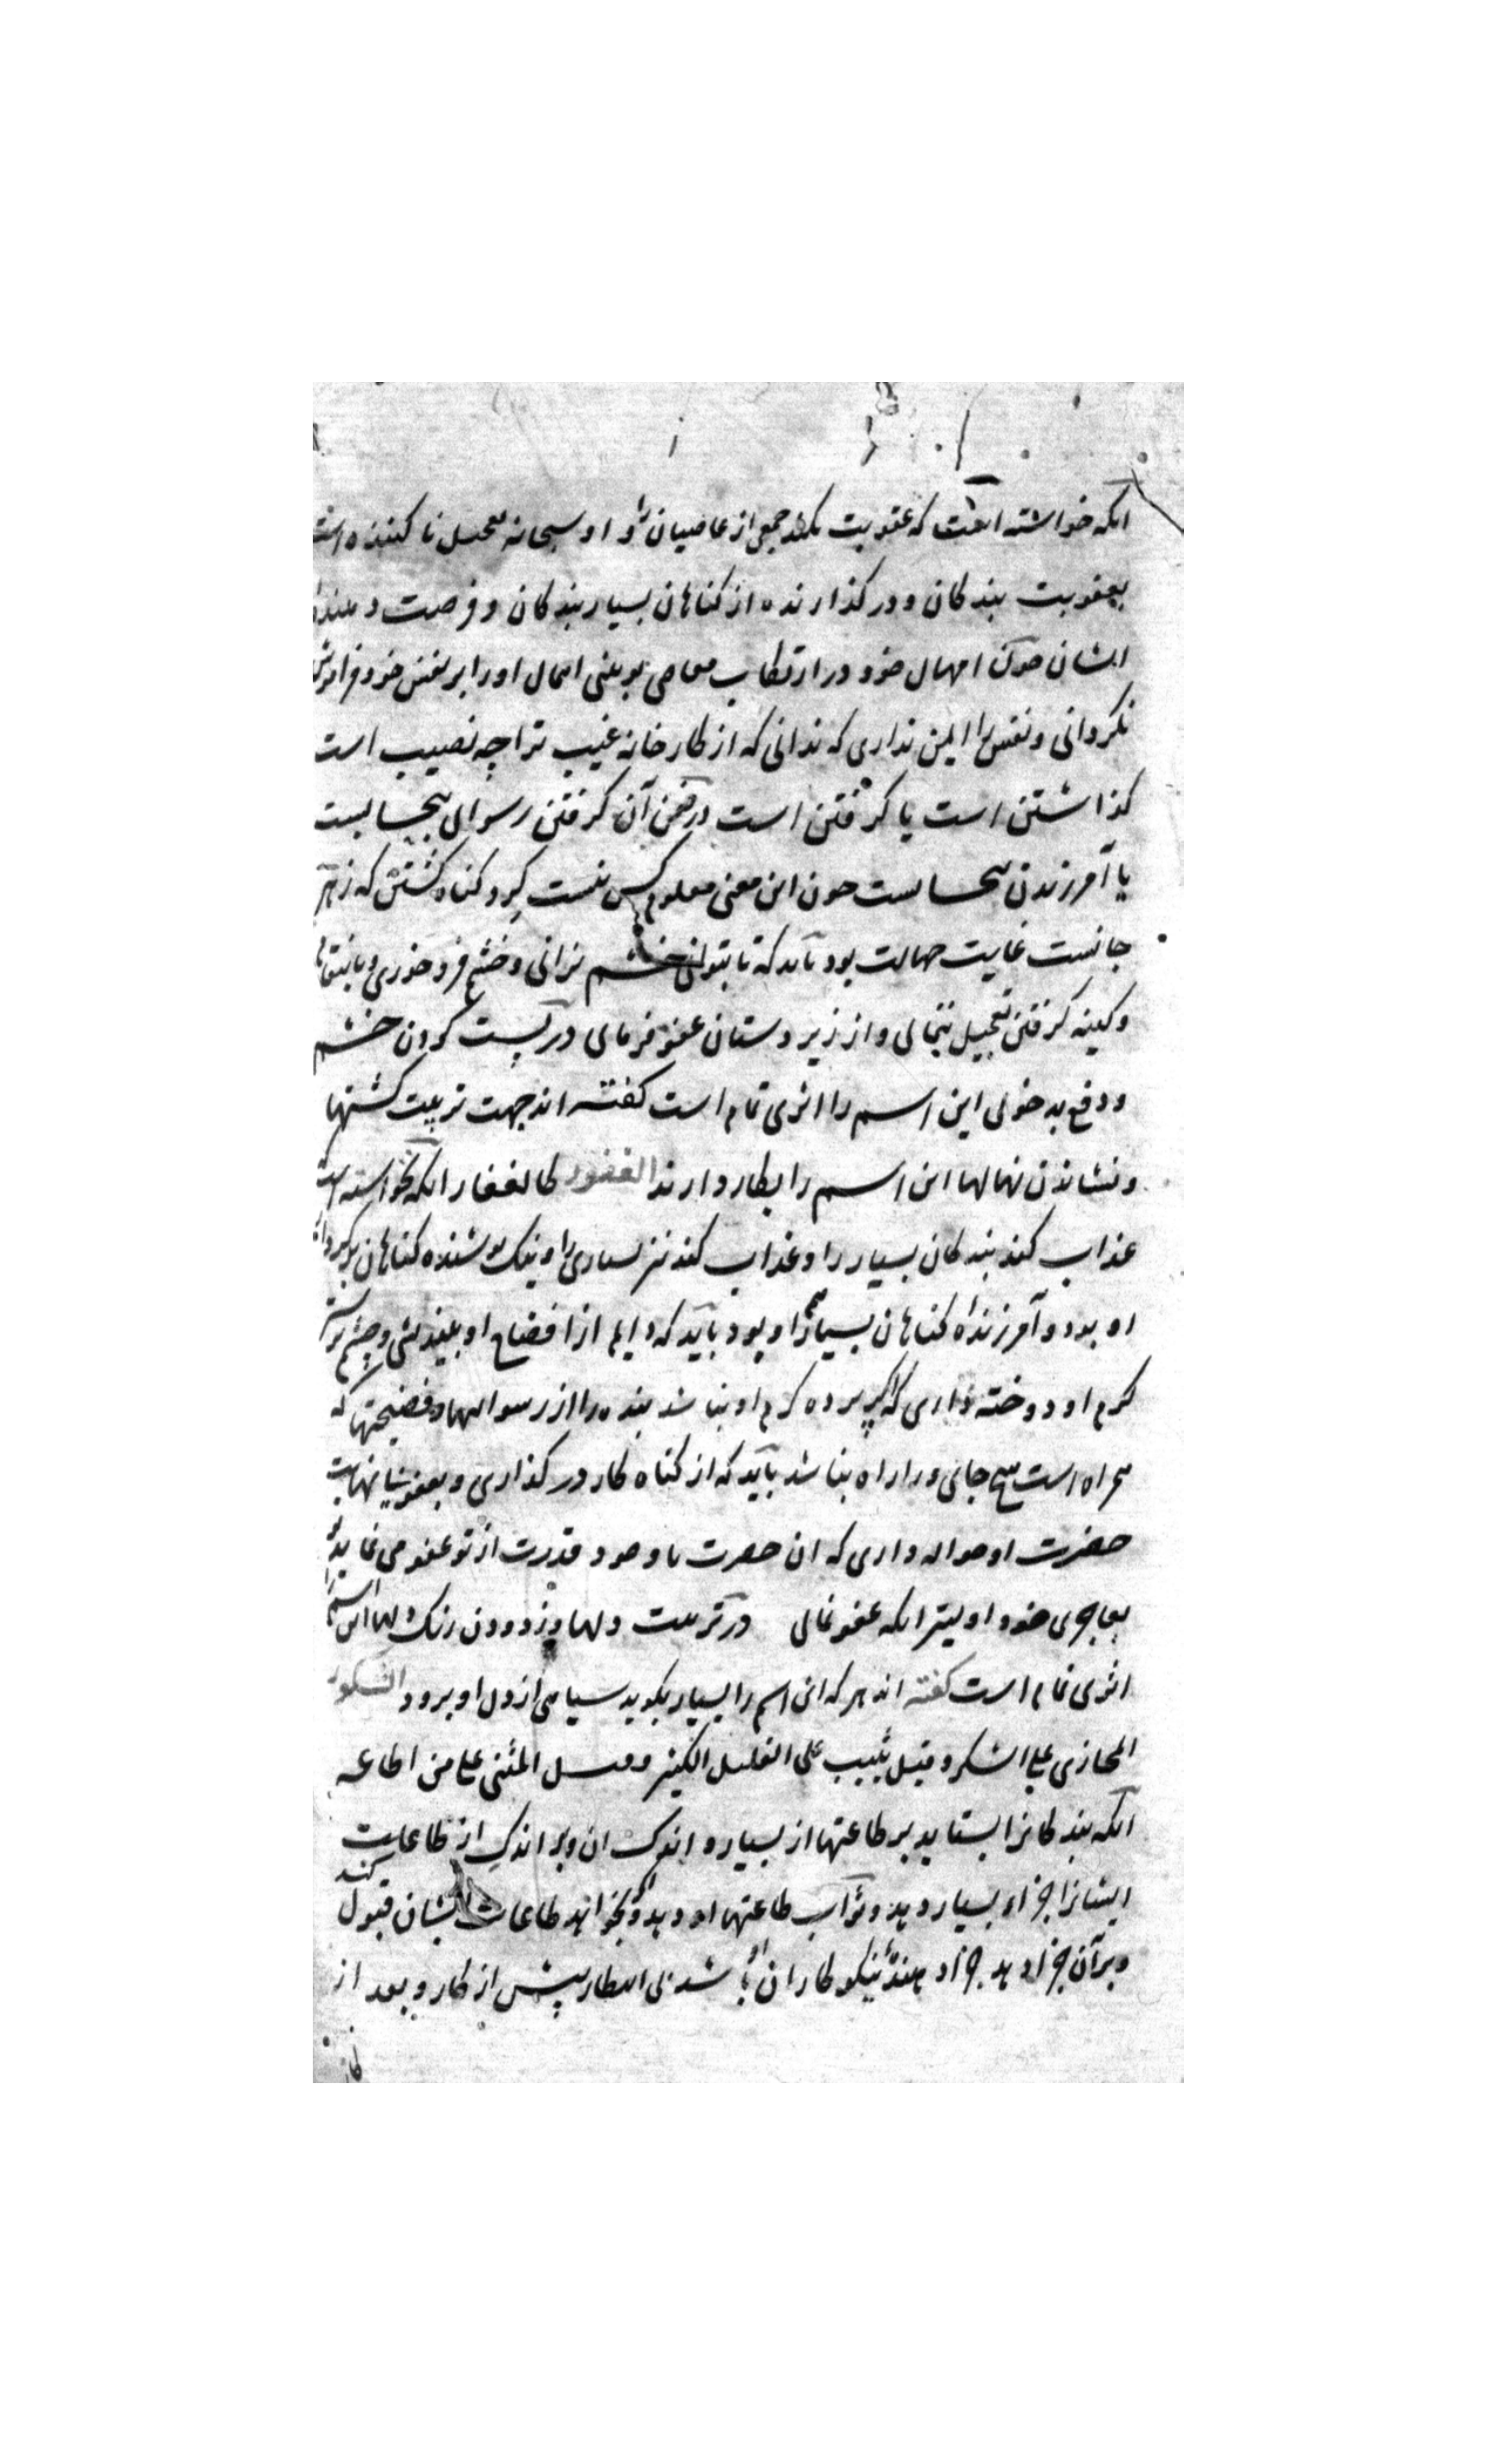 انکه خواسته است که عقوبت نکند جمعی از عاصیان را و او سبحانه تعجیل نا کننده است
بعقوبت بندکان و در کذارنده از کناهان بسیار بندکان و فرصت دهنده
ایشان چون امهال خود در ارتکاب معاصی بینی امهال او را بر نفس خود فراموش
نکردانی و نفس را ایمن نداری که ندانی که از کارخانه غیب ترا چه نصیب است
کذاشتن است یا کرفتن است در ضمن آن کرفتن رسوایی بیحسابست
یا آمرزیدن بیحسابست چون این معنی معلوم کس نیست کرد کناه کشتن که زهر
جانست غایت جهالت بود باید که تا بتوانی خشم نرانی و خشم فرو خوری و بانتقام
و کینه کرفتن تعجیل ننمایی و از زیر دستان عفو فرمایی در پست کردن خشم
و دفع بد خویی این اسم را اثری تمام است کفته اند جهت تربیت کشتها
و نشاندن نهالها این اسم را بکار دارند الغفور کالغفار انکه نخواسته است
عذاب کند بندکان بسیار را و عذاب کند نیز بسیاری را و نیک پوشنده کناهان
او بود و آمرزنده کناهان بسیار او بود باید که دایم از افضاح او بیندیشی و چشم بر
کرم او دوخته داری که اکر پرده کرم او نباشد بنده را از رسواییها و فضیحتها که
همراه است هیچ جای ورا راه نباشد باید که از کناه کار در کذاری و بعفو بی نهایت
حضرت او حواله داری که ان حضرت با وجود قدرت از تو عفو می نماید تو
بعاجزی خود اولیتر انکه عفو نمایی در تربیت دلها و زدودن زنک دلها این اسم را
اثری تمام است کفته اند هر که این اسم را بسیار بکوید سیاهی از دل او برود الشکور
المجازی علی الشکر و قیل یثیب علی القلیل الکثیر و قیل المثنی علی من اطاعه
آنکه بندکانرا بستاید بر طاعتها از بسیار و اندک ان و بر اندک از طاعات
ایشانرا جزاء بسیار دهد و ثواب طاعتها او دهد و بخواند طاعات ایشان قبول کند
و بر آن جزا دهد جزا دهنده نیکو کاران او باشد بی انتظار پیش از کار و بعد از
کار